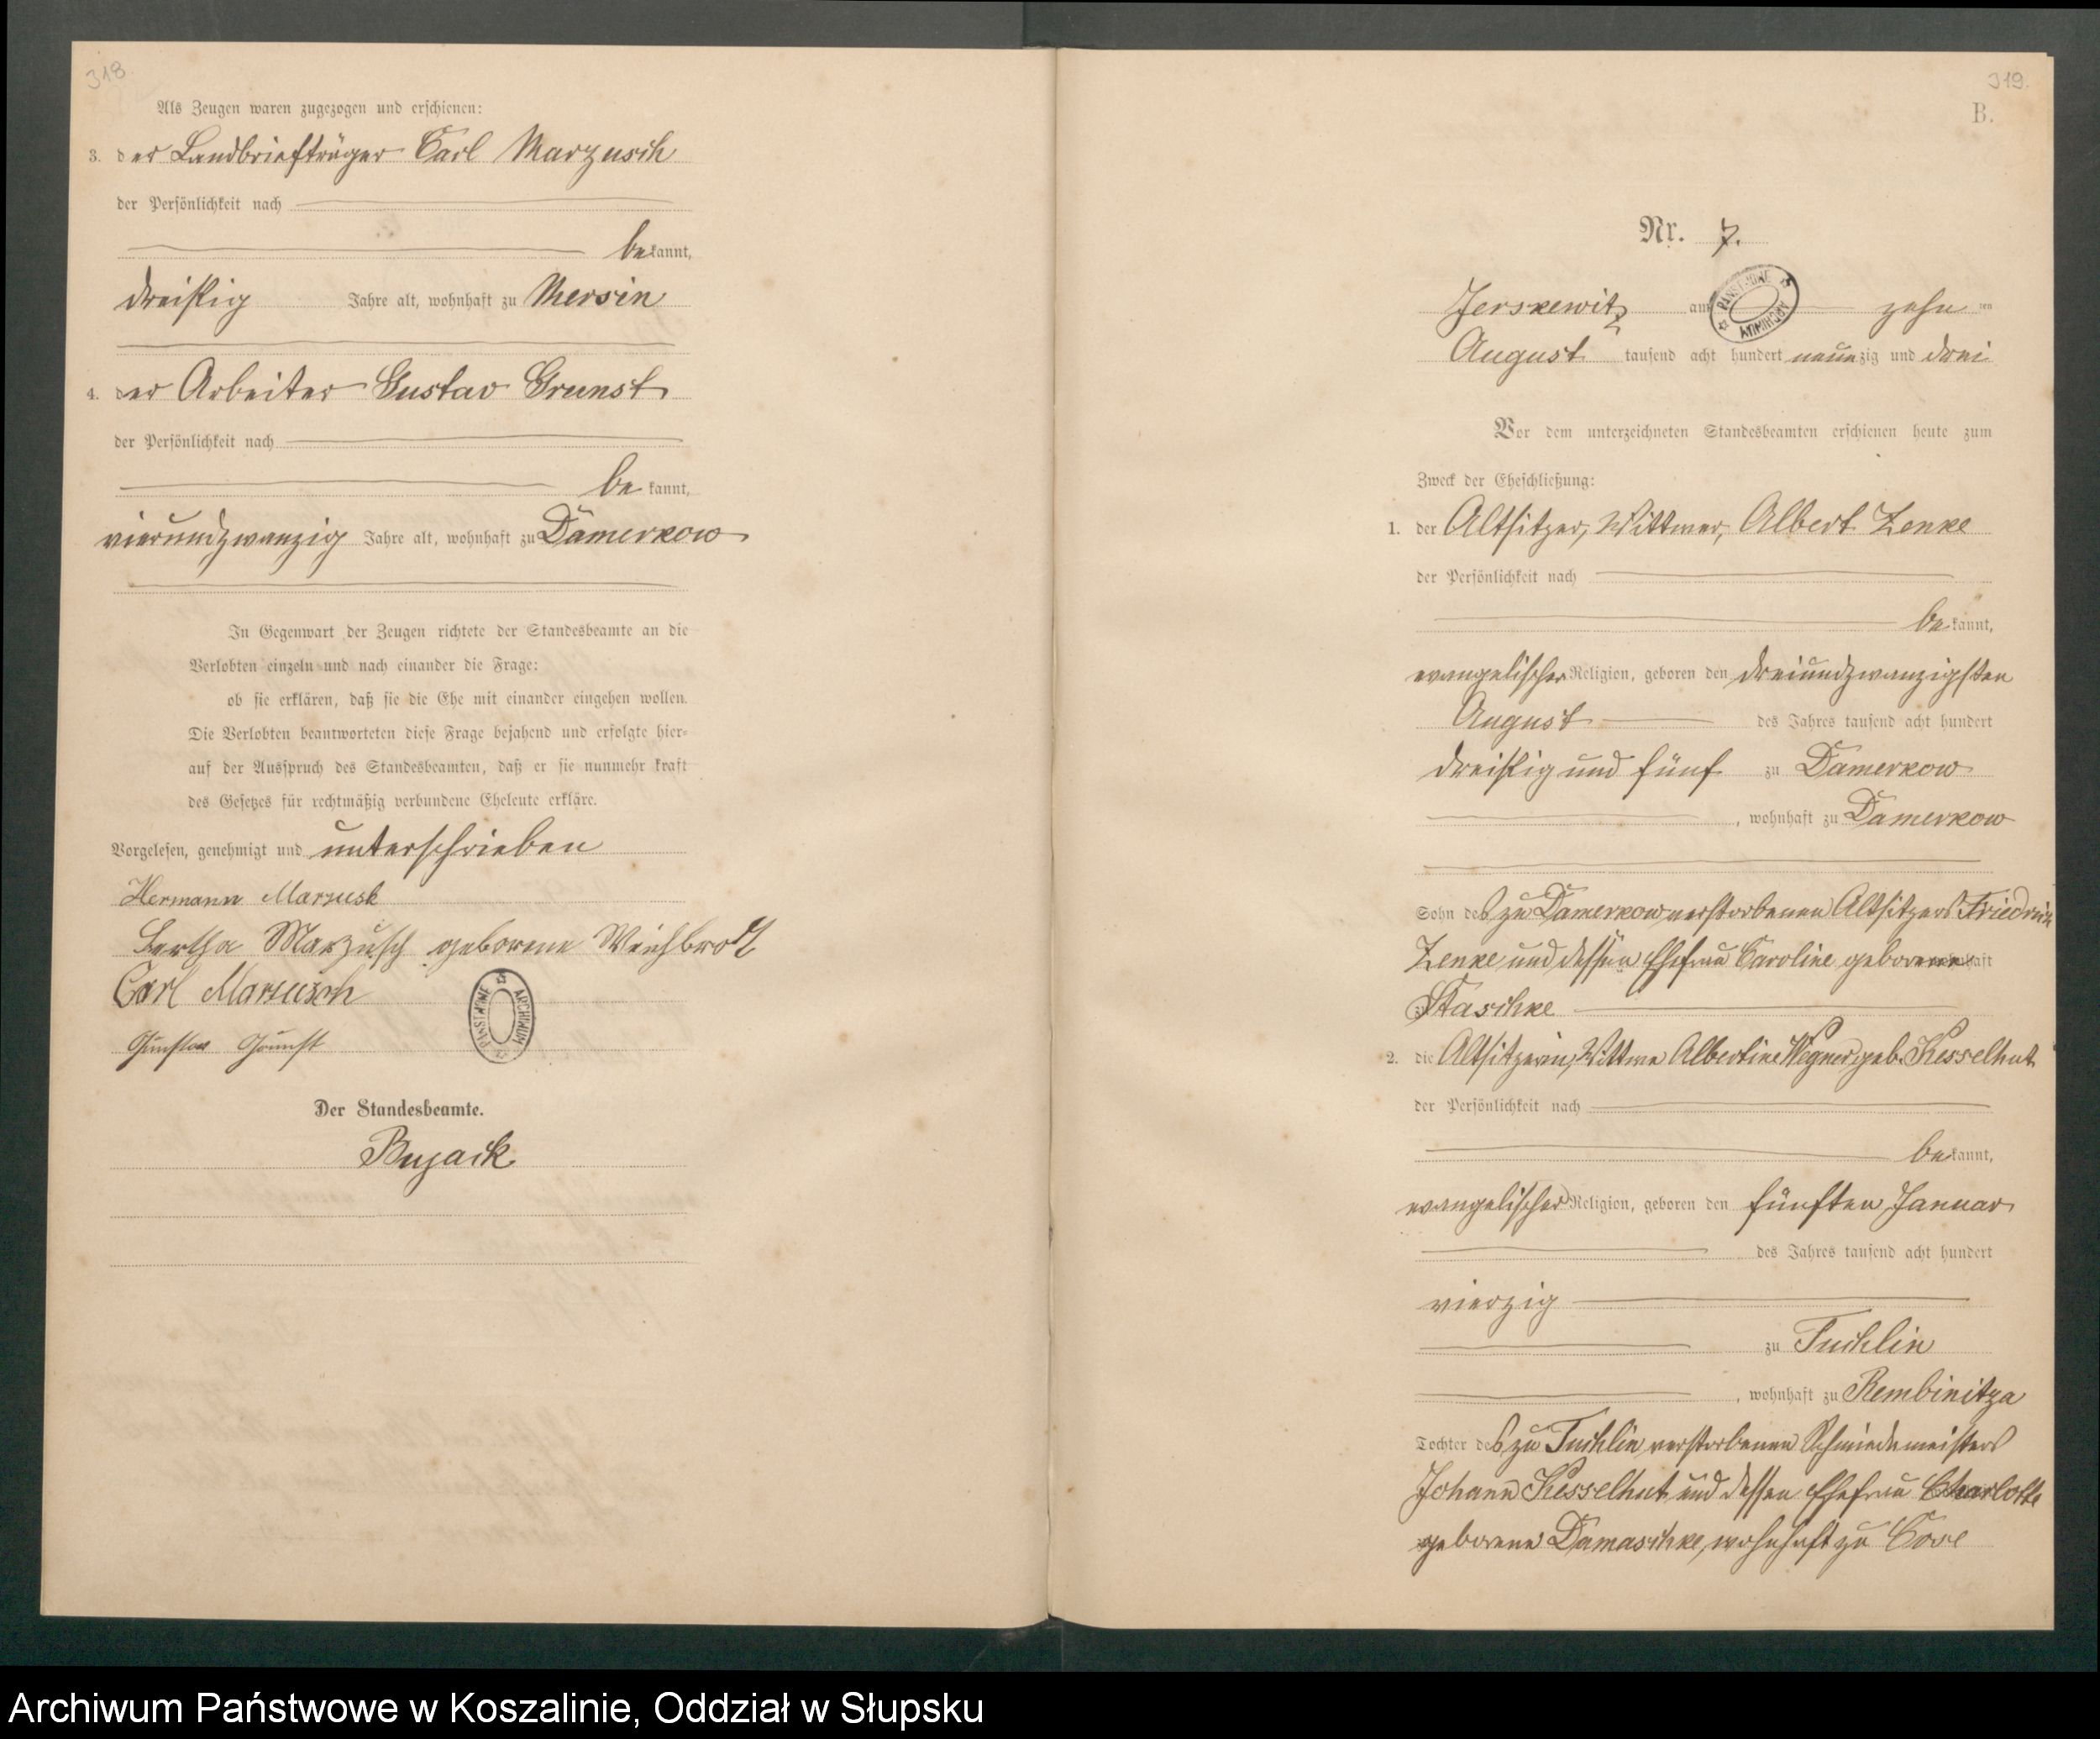 318
Als Zeugen waren zugezogen und erschienen:
3. der Landbriefträger Carl Marzusch
der Persönlichkeit nach
bekannt,
dreißig Jahre alt, wohnhaft zu Mersin
4. der Arbeiter Gustav Grunst
der Persönlichkeit nach
bekannt,
vierundzwanzig Jahre alt, wohnhaft zu Damerkow
In Gegenwart der Zeugen richtete der Standesbeamte an die
Verlobten einzeln und nach einander die Frage:
ob sie erklären, daß sie die Ehe mit einander eingehen wollen.
Die Verlobten beantworteten diese Frage bejahend und erfolgte hier-
auf der Ausspruch des Standesbeamten, daß er sie nunmehr kraft
des Gesetzes für rechtmäßig verbundene Eheleute erkläre.
Vorgelesen, genehmigt und unterschrieben
Hermann Marzusch
Bertha Marzusch geborene Weichbrodt
Carl Marzusch
Gustav Grunst
PANSTWOWE ARCHIWUM
Der Standesbeamte.
Bujack
319.
B.
Nr. 7.
Jerskewitz am zehn ten
PANSTWOWE ARCHIWUM
August tausend acht hundert neunzig und drei
Vor dem unterzeichneten Standesbeamten erschienen heute zum
Zweck der Eheschließung:
1. der Altsitzer, Wittwer, Albert Zenke
der Persönlichkeit nach
bekannt,
evangelischer Religion, geboren den dreiundzwanzigsten
August des Jahres tausend acht hundert
dreißig und fünf zu Damerkow
, wohnhaft zu Damerkow
Sohn des zu Damerkow verstorbenen Altsitzers Friedrich
Zenke und dessen Ehefrau Caroline geborene
Staschke
2. die Altsitzerin, Wittwe Albertine Wegner, geb. Kesselhut
der Persönlichkeit nach
bekannt,
evangelischer Religion, geboren den fünften Januar
des Jahres tausend acht hundert
vierzig
zu Tuchlin
, wohnhaft zu Rembinitza
Tochter des zu Tuchlin verstorbenen Schmiedemeisters
Johann Kesselhut und dessen Ehefrau Charlotte
geborene Damaschke, wohnhaft zu
Archiwum Państwowe w Koszalinie, Oddział w Słupsku